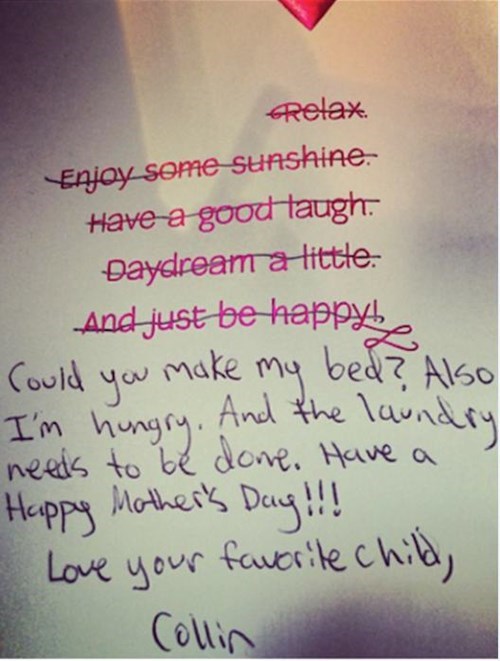 Relax.
Enjoy some sunshine.
Have a good laugh.
Daydream a little.
And just be happy!
Could you make my bed? Also
I'm hungry. And the laundry
needs to be done. Have a
Happy Mother's Day!!!
Love your favorite child,
Collin